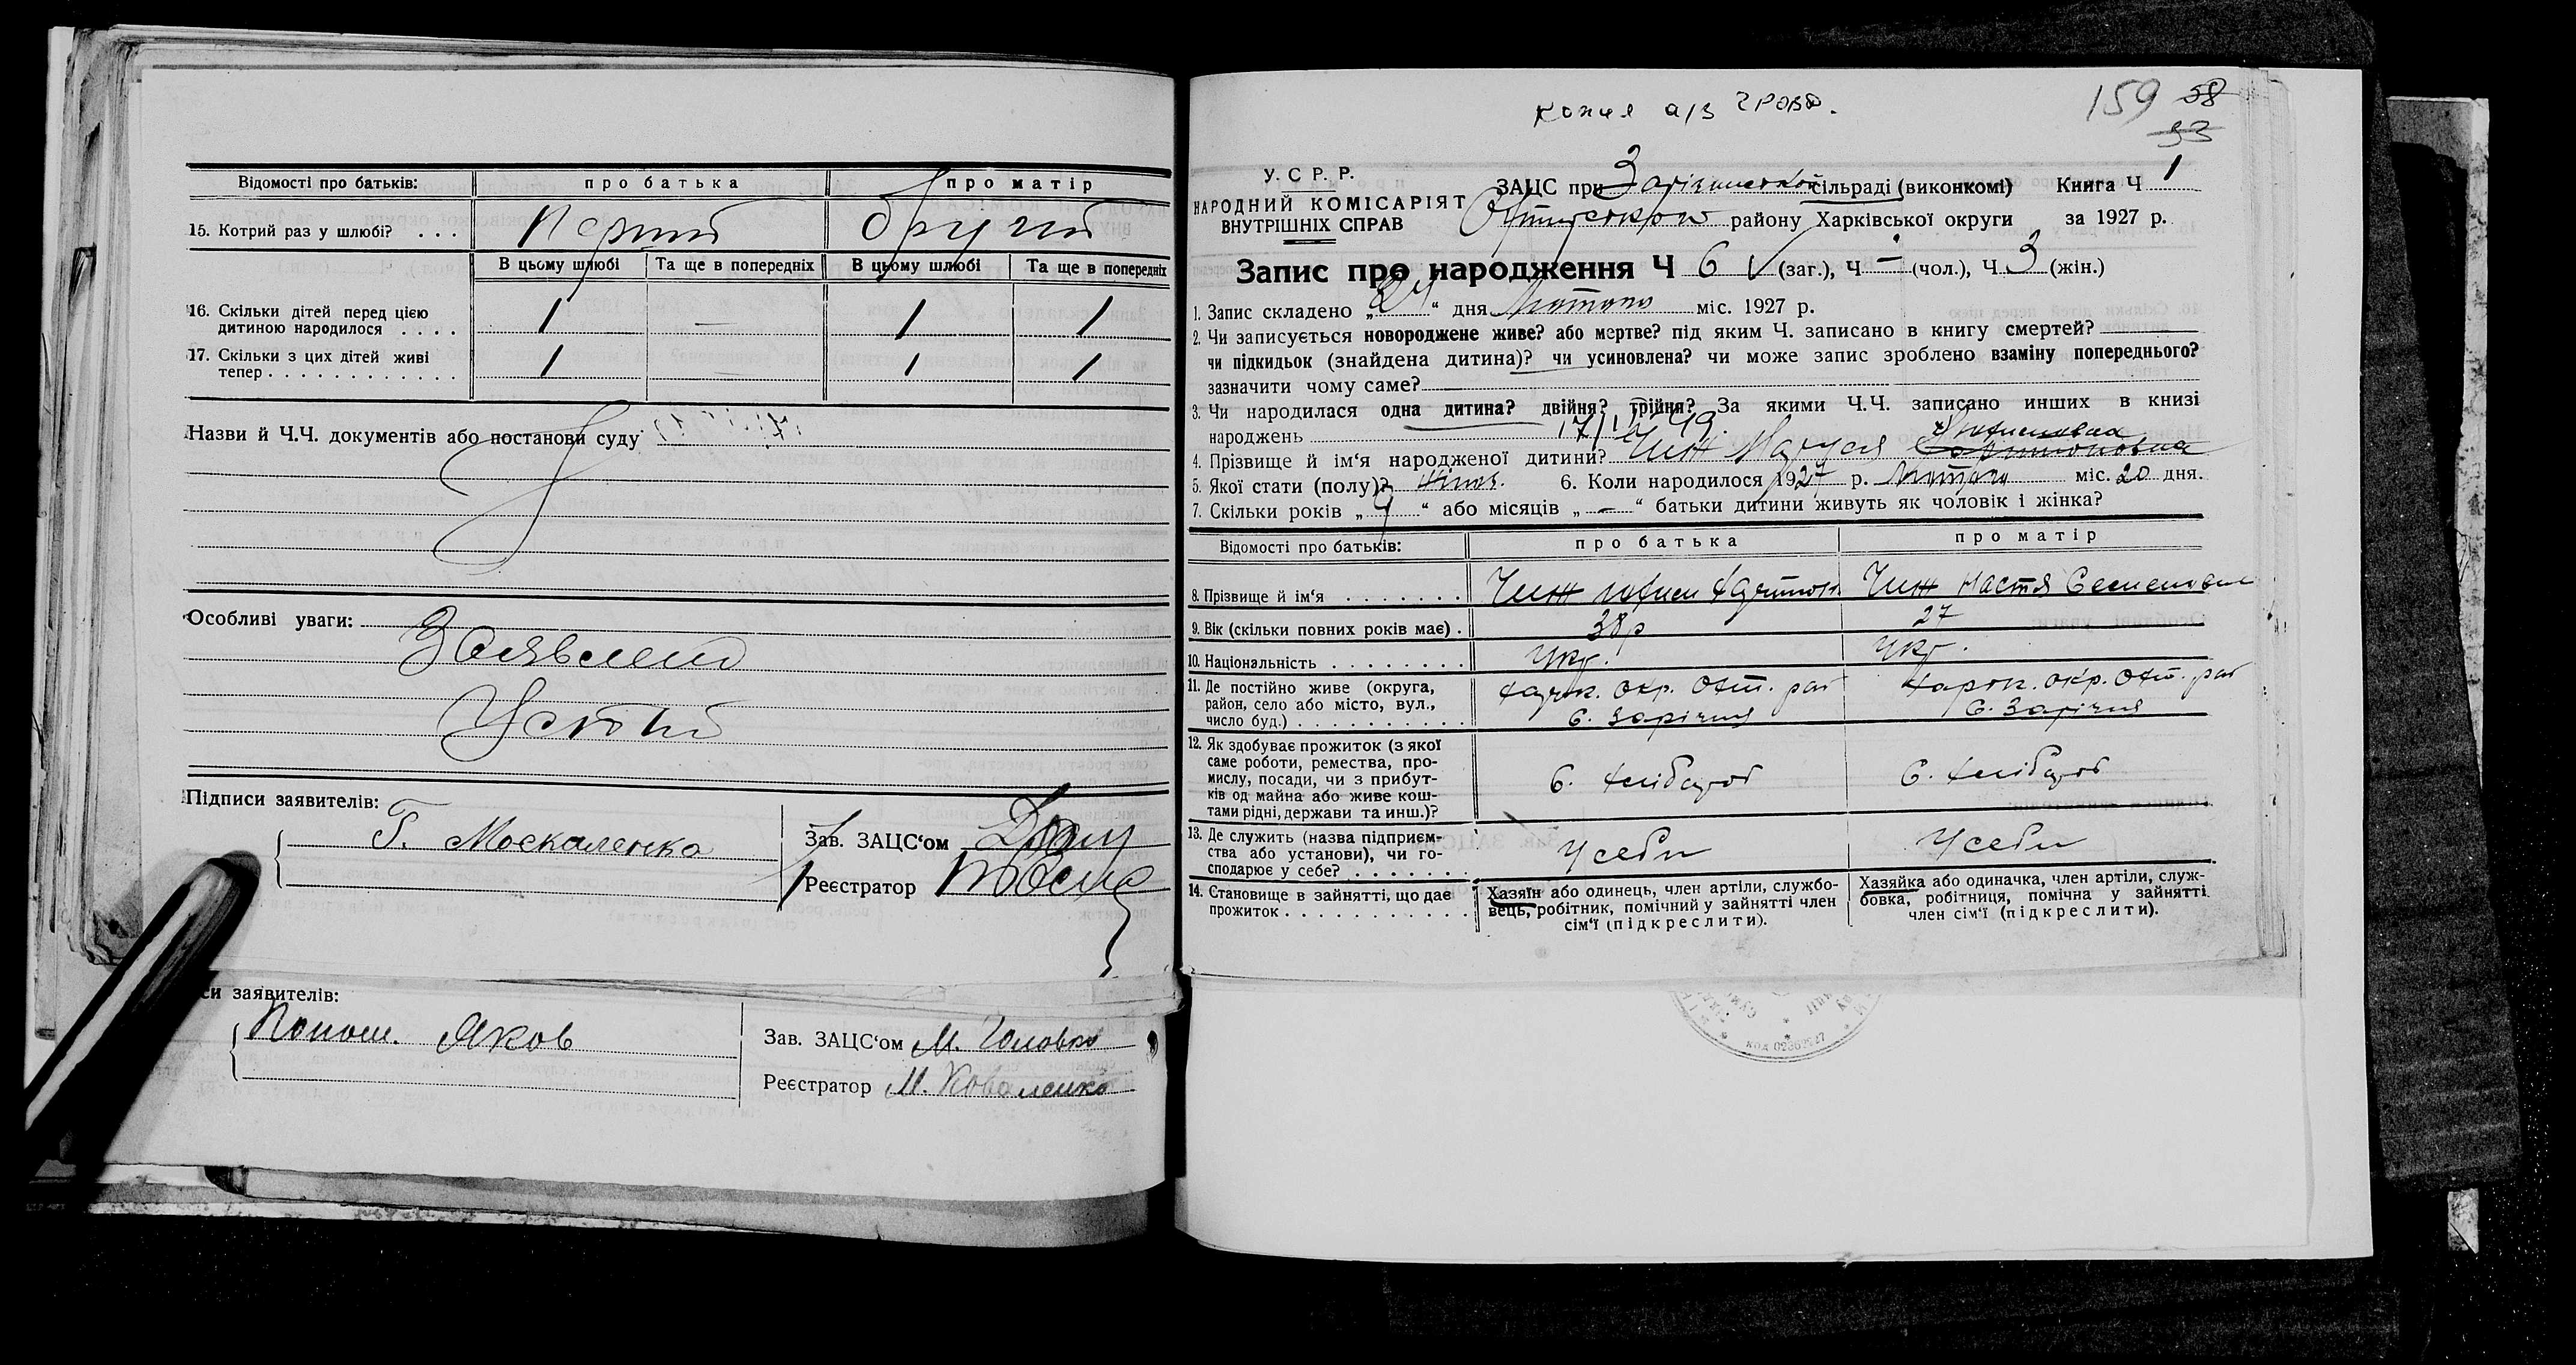 Відомості про батьків: про батька про матір
15. Котрий раз у шлюбі? . . . Перший другий
В цьому шлюбі Та ще в попередніх В цьому шлюбі Та ще в попередніх
16. Скільки дітей перед цією
дитиною народилося . . . . 1 — 1 1
17. Скільки з цих дітей живі
тепер . . . . . . . . . . . . 1 — 1 1
Назви й Ч.Ч. документів або постанови суду
Особливі уваги:
Заявлено
Устно
Підписи заявителів:
Г. Москаленко
Зав. ЗАЦС‘ом
Реєстратор
си заявителів:
Яков
Зав. ЗАЦС‘ом М. Головко
Реєстратор М. Коваленко
Копия а/з
159 58
53
У. С Р. Р.
НАРОДНИЙ КОМІСАРІЯТ
ВНУТРІШНІХ СПРАВ
ЗАЦС при сільраді (виконкомі) Книга Ч 1
району Харківської округи за 1927 р.
Запис про народження Ч 6 (заг.), Ч - (чол.), Ч 3 (жін.)
1. Запис складено „24“ дня Лютого міс. 1927 р.
2. Чи записується новороджене живе? або мертве? під яким Ч. записано в книгу смертей?
чи підкидьок (знайдена дитина)? чи усиновлена? чи може запис зроблено взаміну попереднього?
зазначити чому саме?
3. Чи народилася одна дитина? двійня? трійня? За якими Ч.Ч. записано инших в книзі
народжень
4. Прізвище й ім‘я народженої дитини? Чиж Маруся
5. Якої стати (полу)? Жіноч. 6. Коли народилося 1927 р. Лютого міс. 20 дня.
7. Скільки років „4“ або місяців „—“ батьки дитини живуть як чоловік і жінка?
Відомості про батьків: про батька про матір
8. Прізвище й ім‘я . . . . . . . Чиж Чиж Настя Семеновна
9. Вік (скільки повних років має) . 38 р 27
10. Національність . . . . . . . . Укр. Укр.
11. Де постійно живе (округа,
район, село або місто, вул.,
число буд.) . . . . . . . . . . Харк. окр. Охт. рай Харк. окр. Охт. рай
С. Зарічня С. Зарічня
12. Як здобуває прожиток (з якої
саме роботи, ремества, про-
мислу, посади, чи з прибут-
ків од майна або живе кош-
тами рідні, держави та инш.)? С. Хлібороб С. Хлібороб
13. Де служить (назва підприєм-
ства або установи), чи го-
сподарює у себе? . . . . . . . У себи У себи
14. Становище в зайнятті, що дає
прожиток . . . . . . . . . . .
Хазяїн або одинець, член артіли, службо-
вець, робітник, помічний у зайнятті член
сім‘ї (підкреслити).
Хазяйка або одиначка, член артіли, служ-
бовка, робітниця, помічна у зайнятті
член сім‘ї (підкреслити).